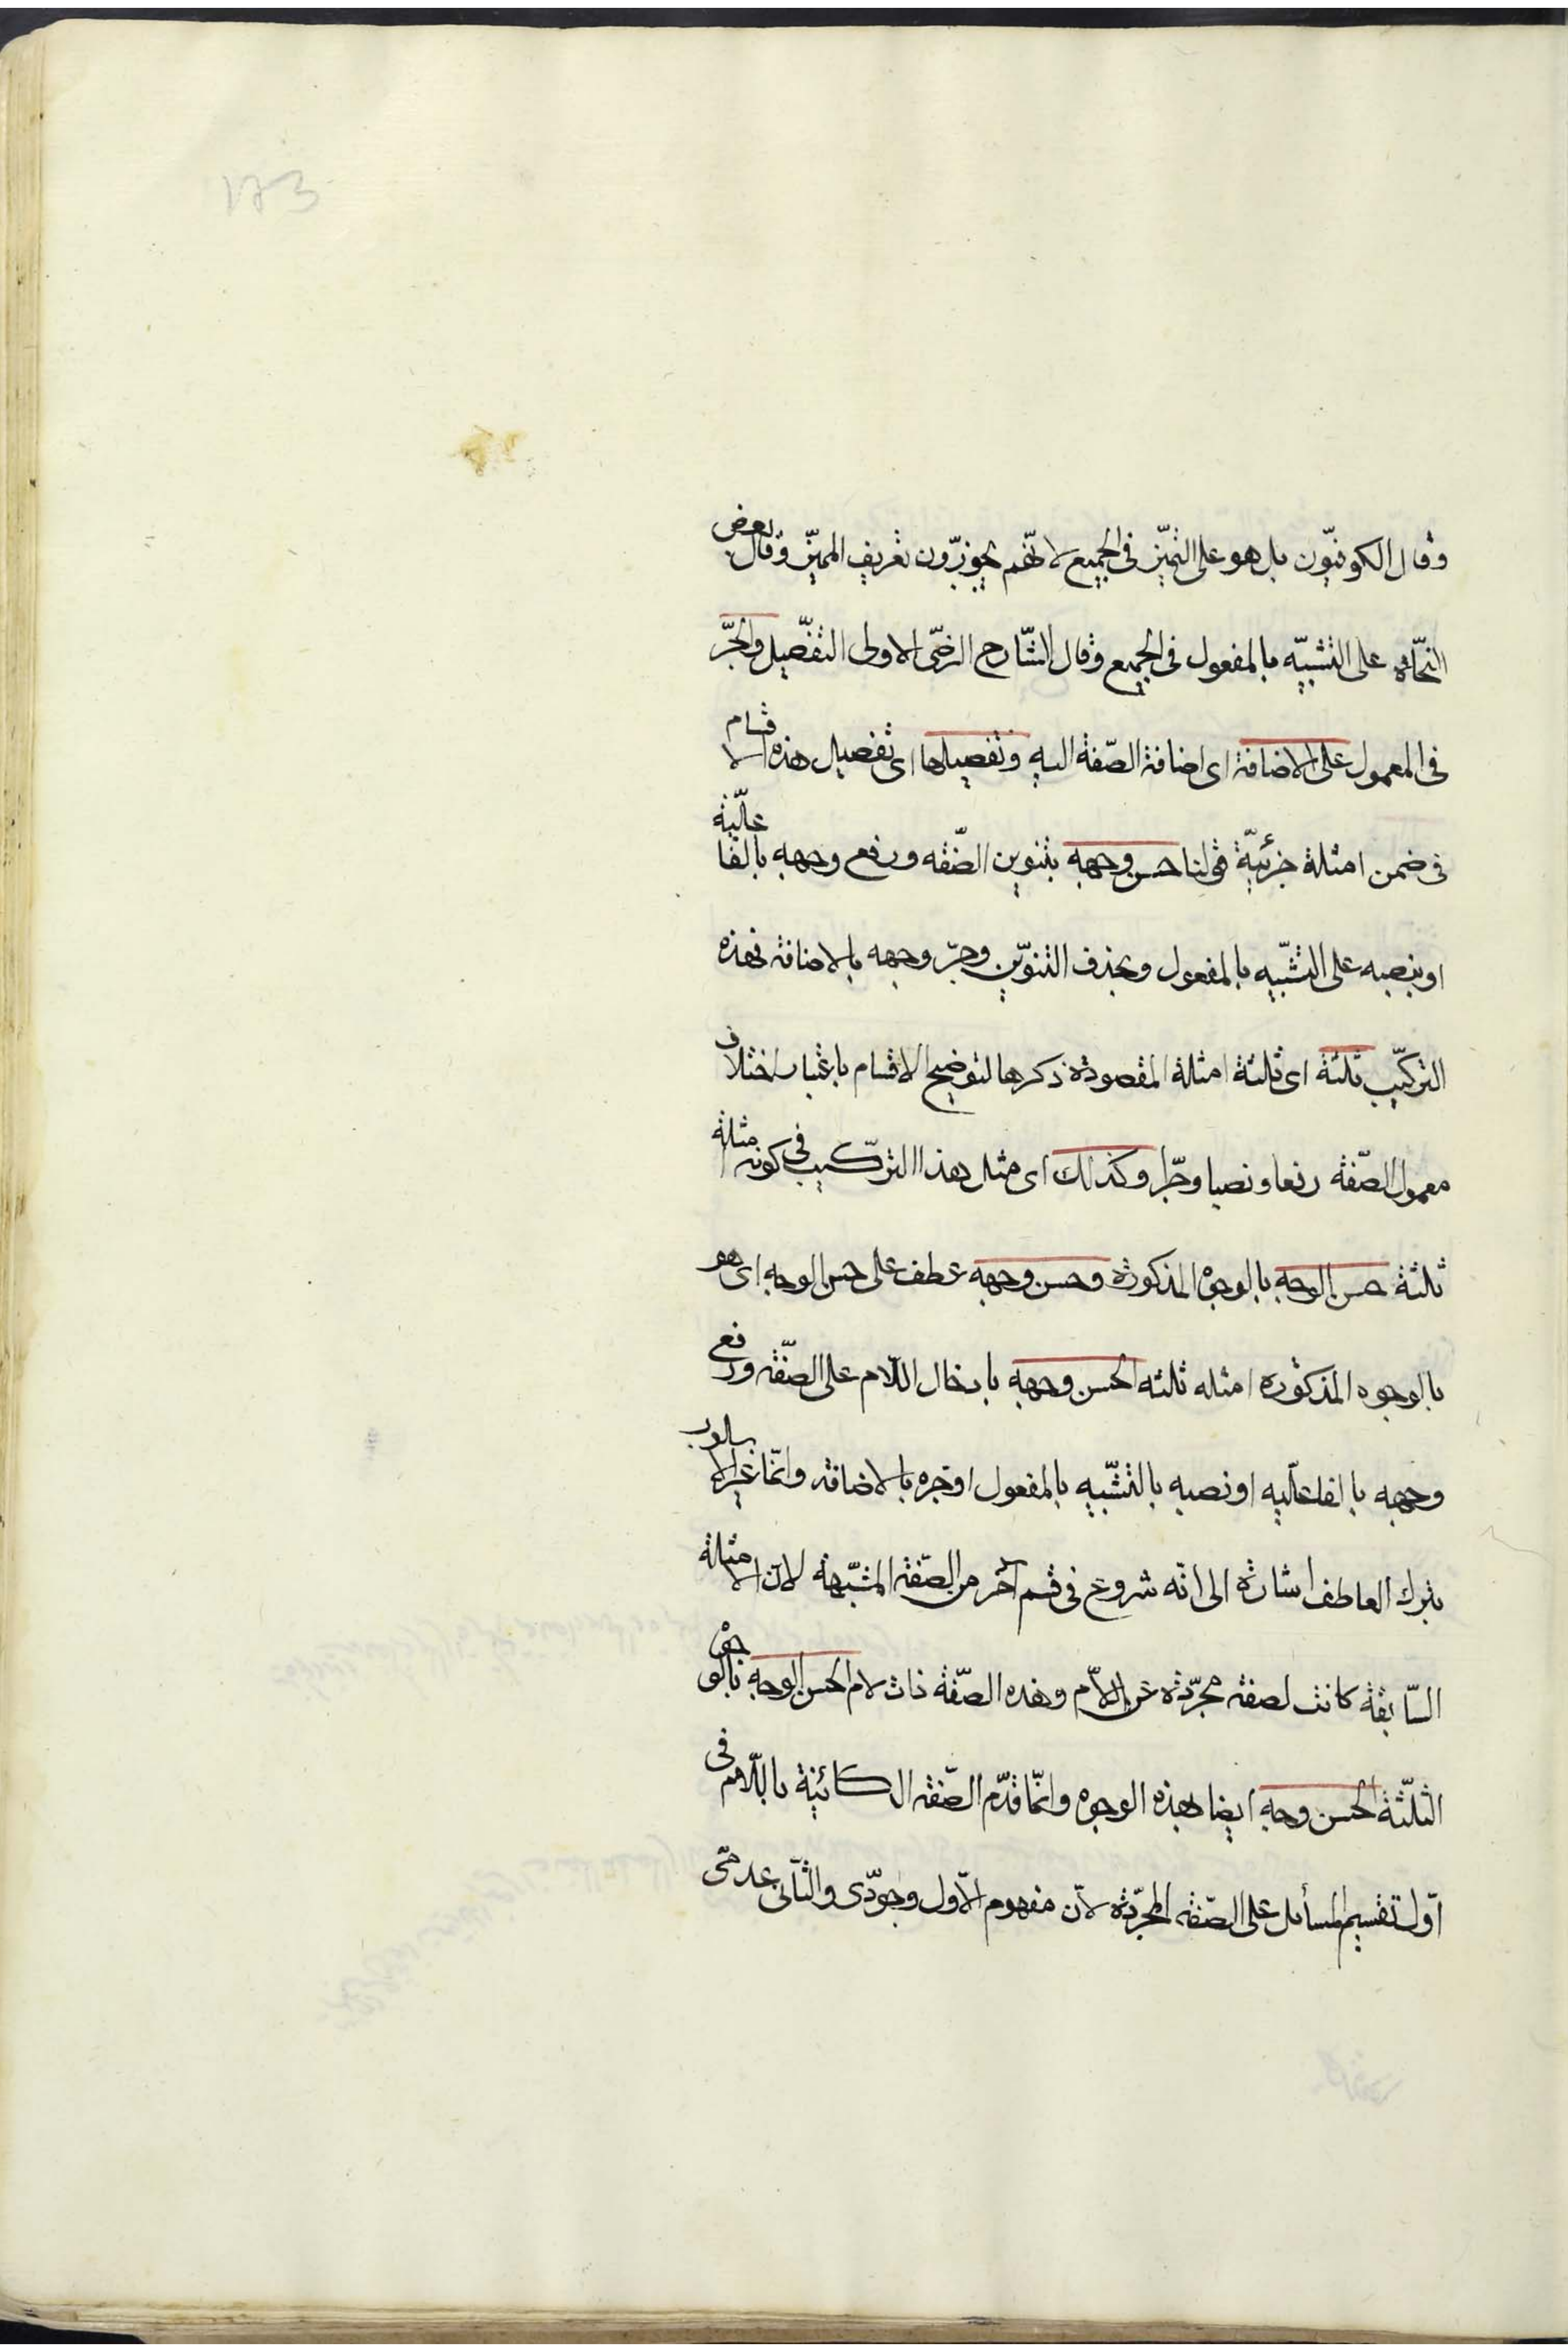 173
وقال الكوفيّون بل هو على التميّز فى الجميع لانّهم يجوّزون تعريف المميّز وقال بعض
النحّاة على التشبيّه بالمفعول فى الجميع وقال الشّارح الرضّى الاولى التفصّيل والجرّ
فى المعمول على الاضافة اى اضافة الصّفة اليه وتفصيلها اى تفصيل هذه الاقسام
فى ضمن امثلة جزئيّة قولنا حسن وجهه بتنوين الصّفه ورفع وجهه بالفاعليّة
او بنصبه على التشّبيه بالمفعول وبحذف التنوّين وجرّ وجهه بالاضافة فهذه
التركيّب ثلثة اى ثلثة امثلة المقصودة ذكرها لتوضيح الاقسام باعتبار اختلاف
معمول الصّفة رفعا ونصبا وجرّا وكذلك اى مثل هذا التركّيب فى كونه امثلة
ثلثة حسن الوجه بالوجوه المذكورة وحسن وجهه عطف على حسن الوجه اى هو
بالوجوه المذكورة امثله ثلثه الحسن وجهه بادخال اللّام على الصّفة ورفع
وجهه بالفاعليّه او نصبه بالتشّبيه بالمفعول او جره بالاضافة وانّما غير الاسلوب
بترك العاطف اشارة الى انّه شروع فى قسم آخر من الصّفة المشبّهة لانّ الامثلة
السّابقة كانت لصفة مجرّدة عن اللّام وهذه الصّفة ذات لام الحسن الوجه بالوجوه
الثلّثة الحسن وجه ايضا بهذه الوجوه وانّما قدّم الصّفة الكائنة باللّام فى
اوّل تقسيم المسائل على الصّفة المجرّدة لانّ مفهوم الاّول وجودّى والثّانى عدمّى